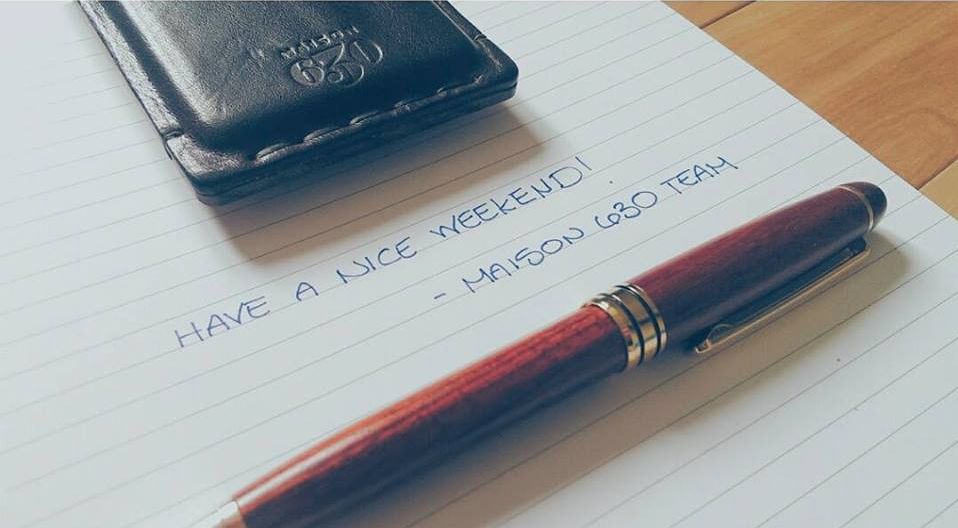 MAISON
630
HAVE A NICE WEEKEND!
- MAISON 630 TEAM